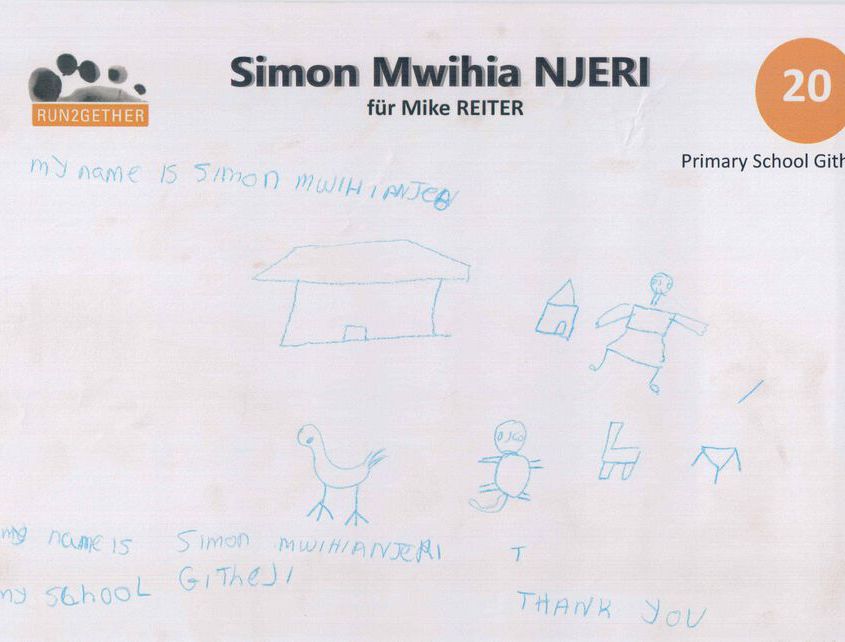 RUN2GETHER
Simon Mwihia NJERI
für Mike REITER
20
Primary School Gith
my name is Simon MWIHIANJE
my name is Simon MWIHIANJERI T
my SchooL GiTheJI
THANK YOU